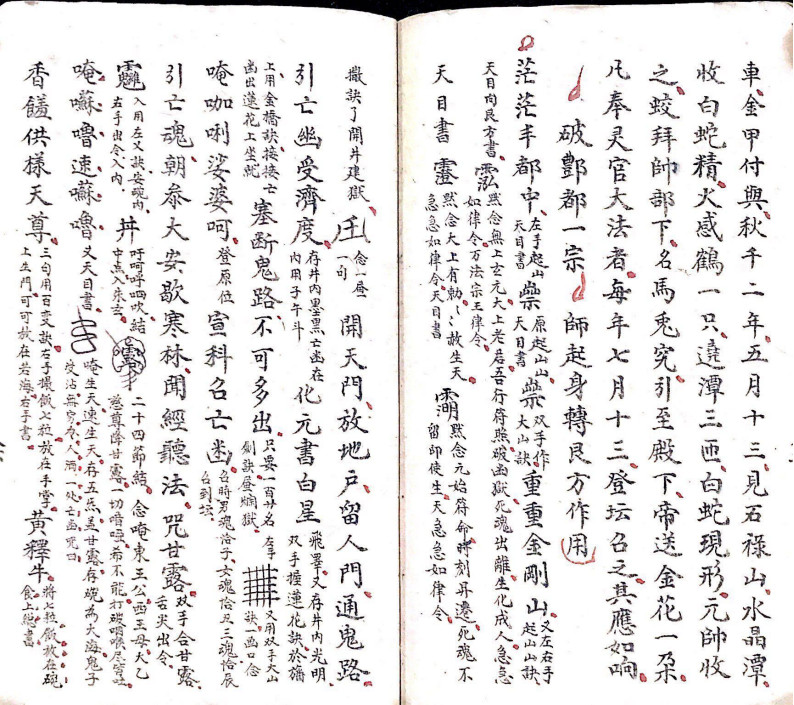 車、金甲付與秋千二年五月十三、見石祿山、水晶潭、
收白蛇精、火感鶴一只、遶潭三匝、白蛇現形、元帥收
之、蛟拜帥部下、名馬兎究、引至殿下、帝送金花一朵、
凡奉灵官大法者、每年七月十三登坛召之、其應如响、
破酆都一宗 師起身轉艮方作用
茫茫丰都中、左手起山天目書 原起山山天目書 双手作大山訣 重重金剛山、又左右手起山山訣
天目向艮方書、
默念無上玄元大上老君吾行符照破幽獄死魂出離生化成人急急如律令、万法宗王律令、
天目書
默念太上有勅〻赦生天急急如律令、天目書
默念元始符命時刻再遷死魂不留即使生天急急如律令、
撒訣了開井建獄、
念一聲一句 開天門放地戶留人門通鬼路
引亡幽受濟度、存井內墨黑亡幽在內用子午斗 化元書白星 飛罩又存井內光明双手握蓮花訣於旛
上用金橋訣接接亡幽出蓮花上坐蛇
塞断鬼路不可多出、只要一百廾名 左手劍訣 又用双手大山訣一幽口念
唵咖唎娑婆呵、登原位 宣科召亡幽、召時男魂洽子、女魂恰丑三魂恰辰召到坛、
引亡魂朝叅大安歇寒林、聞經聽法、咒甘露、双手合甘露舌尖出令、
入用左又訣安碗內右手出令入內、 井 吽呵呼呬吹結中点入朱玄、 二十四節結、念唵東王公西王母太乙慈尊降甘露一切喑啞希不能打破咽喉
唵囌嚕速囌嚕、又天目書 唵生天速生天存五炁盖甘露存碗為大海鬼子
香饚供樣天尊、三句用百变訣右手撮飯七粒放在手掌上生門可可放在若海右手書、 黃釋牛、將七粒飯放在碗食上総書